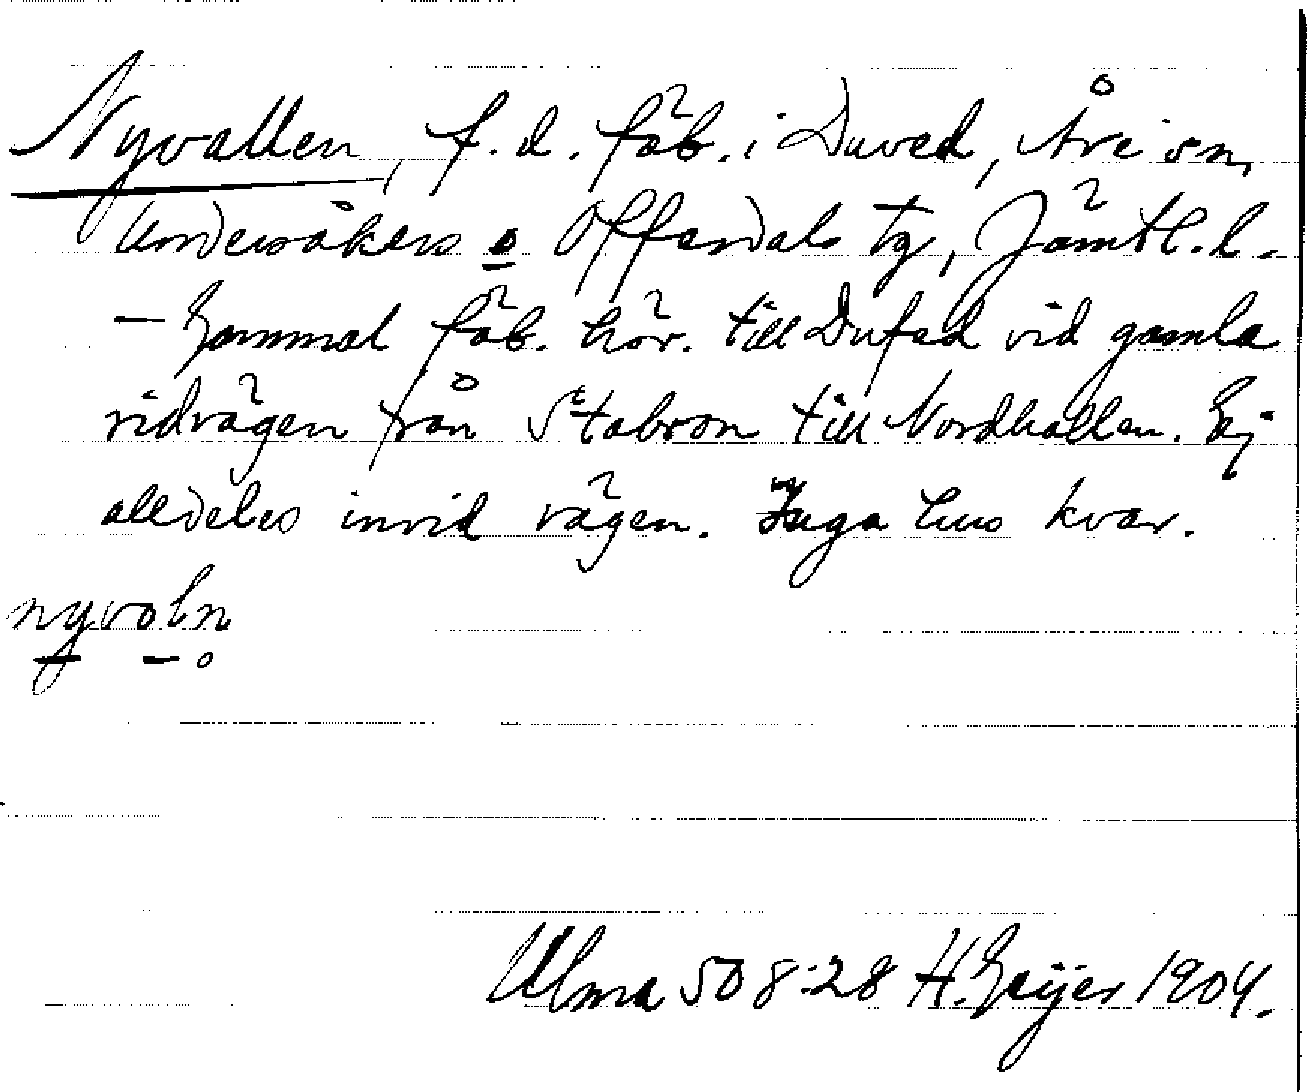 Nyvallen, f.d. fäb. i Duved, Åre sn,
Undersåkers o Offerdals tg, Jämtl. l.
— Gammal fäb. hör. till Dufed vid gamla
ridvägen från Stabron till Nordhallen. Ej
alldeles invid vägen. Inga hus kvar.
nyvoln
Ulma 508:28 H. Geijer 1904.